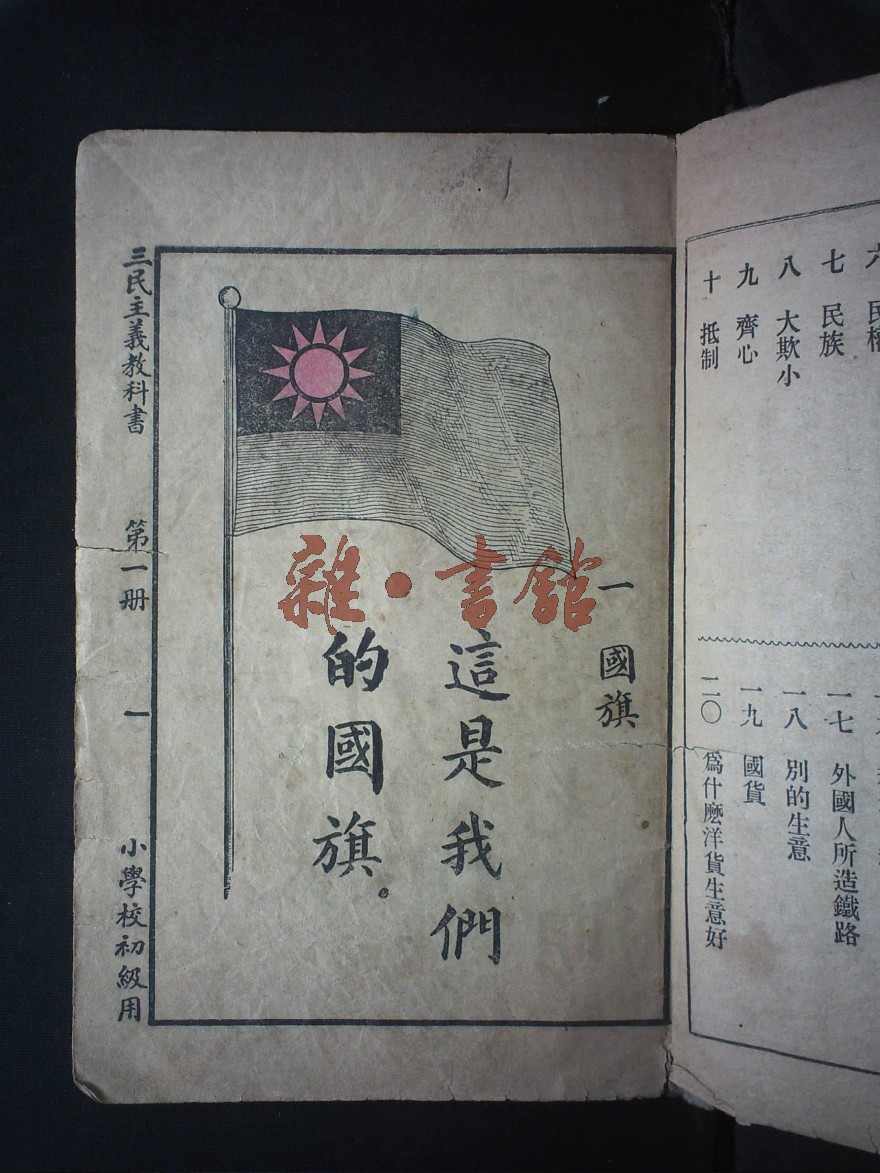 六 民權
七 民族
八 大欺小
九 齊心
十 抵制
一七 外國人所造鐵路
一八 別的生意
一九 國貨
二〇 爲什麽洋貨生意好
一 國旗
這是我們
的國旗。
三民主義教科書 第一册 一 小學校初級用
雜·書館